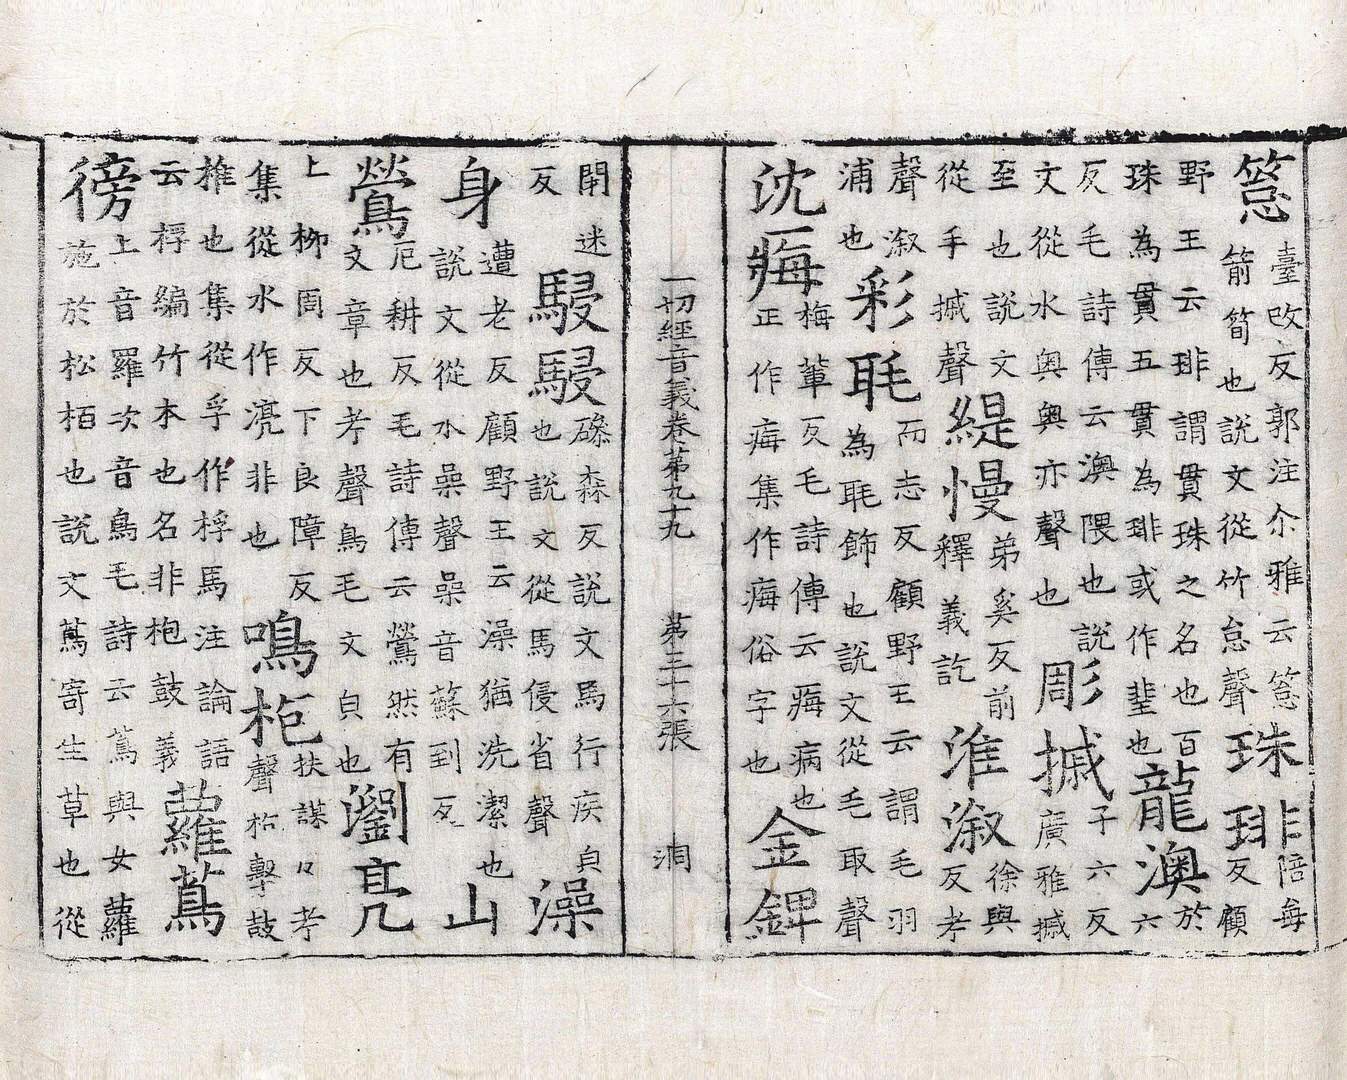 䈚臺改反郭注尒雅云䈚箭筍也説文從竹怠聲珠琲陪每反顧
野王云琲謂貫珠之名也百珠為貫五貫為琲或作也龍澳於六
反毛詩傳云澳隈也説文從水奥奥亦聲也彫摵子六反廣雅摵
至也説文從手摵聲緹慢弟奚反前釋義訖淮溆徐與反考
聲溆浦也彩毦而志反顧野王云謂毛羽為毦飾也説文從毛耴聲
沈痗梅輩反毛詩傳云痗病也正作痗集作痗俗字也金錍
一切經音義卷第九十九 第三十六張 洞
閇迷反駸駸磣森反説文馬行疾皃也説文從馬侵省聲澡
身遭老反顧野王云澡猶洗潔也説文從水喿聲喿音蘇到反山
鶯厄耕反毛詩傳云鶯然有文章也考聲鳥毛文皃也瀏亮
上栁周反下良障反集從水作湸非也鳴枹扶謀反考聲枹擊鼓
椎也集從孚作桴馬注論語云桴編竹木也名非枹鼓義蘿蔦
徬上音羅次音鳥毛詩云蔦與女蘿施於松栢也説文蔦寄生草也從